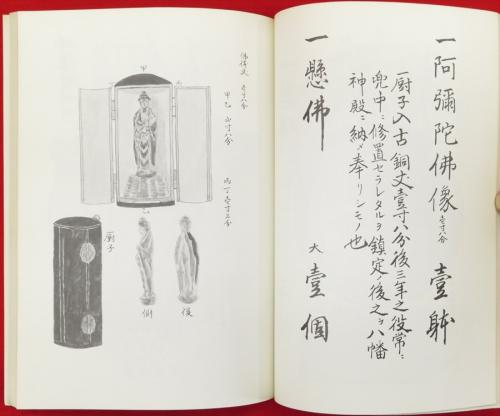 一阿彌陀佛像 壱寸八分 壹躰
一厨子入古銅丈壹寸八分後三年之役常ニ
兜中ニ修置セラレタルヲ鎮定ノ後之ヲ八幡
神殿ニ納メ奉リシモノ也
一懸佛 大 壹個
佛像丈 壱寸八分
甲乙 寸八分
丙丁 壱寸二分
甲
乙
後
側
厨子